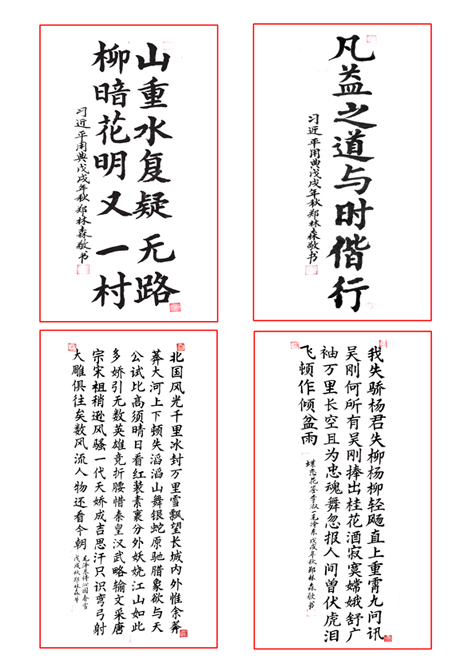 山重水复疑无路
柳暗花明又一村
习近平用典戊戌年秋郑林森敬书
凡益之道与时偕行
习近平用典戊戌年秋郑林森敬书
北国风光千里冰封万里雪飘望长城内外惟余莽
莽大河上下顿失滔滔山舞银蛇原驰腊象欲与天
公试比高须晴日看红装素裹分外妖娆江山如此
多娇引无数英雄竞折腰惜秦皇汉武略输文采唐
宗宋祖稍逊风骚一代天娇成吉思汗只识弯弓射
大雕俱往矣数风流人物还看今朝
毛泽东诗沁园春雪
戊戌秋郑林森书
我失骄杨君失柳杨柳轻飏直上重霄九问讯
吴刚何所有吴刚捧出桂花酒寂寞嫦娥舒广
袖万里长空且为忠魂舞忽报人间曾伏虎泪
飞顿作倾盆雨
蝶恋花答李叔一毛泽东戊戌年秋郑林森书